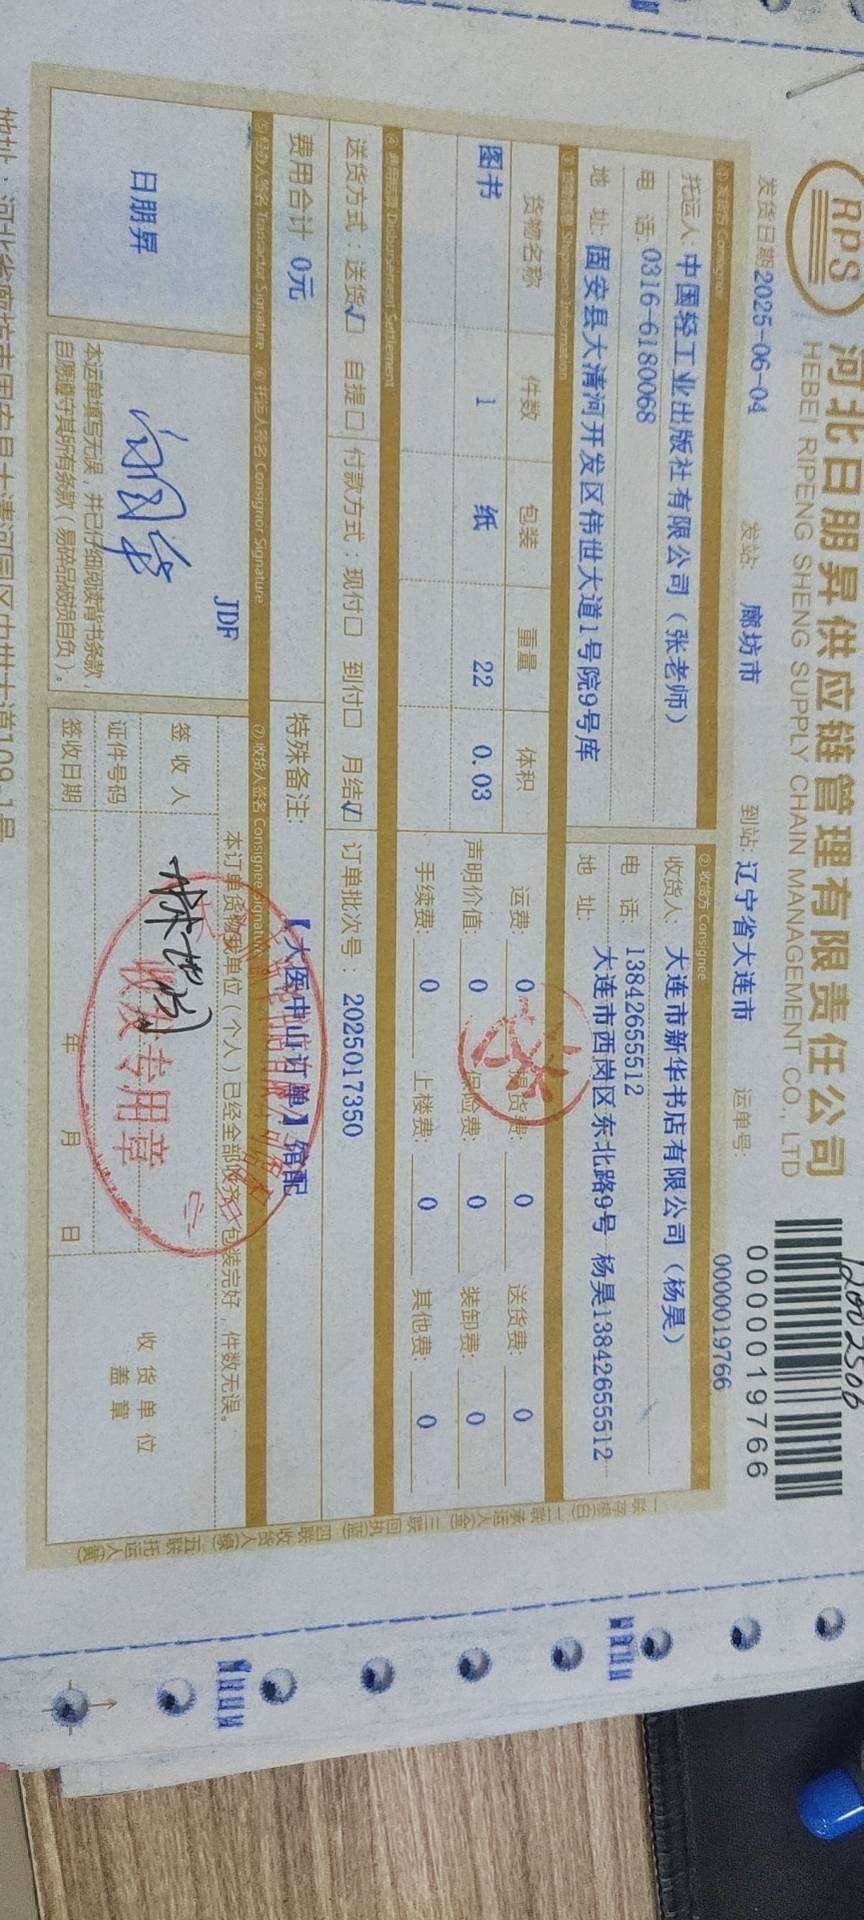 1d002506
RPS
河北日朋昇供应链管理有限责任公司
HEBEI RIPENG SHENG SUPPLY CHAIN MANAGEMENT CO., LTD
0000019766
发货日期 2025-06-04 发站: 廊坊市 到站: 辽宁省大连市 运单号: 0000019766
① 发货方 Consignor ② 收货方 Consignee
托运人: 中国轻工业出版社有限公司（张老师） 收货人: 大连市新华书店有限公司（杨昊）
电 话: 0316-6180068 电 话: 13842655512
地 址: 固安县大清河开发区伟世大道1号院9号库 地 址: 大连市西岗区东北路9号 杨昊13842655512
③ 货物信息 Shipment Information
货物名称 件数 包装 重量 体积 运费: 0 提货费: 0 送货费: 0
图书 1 纸 22 0.03 声明价值: 0 保险费: 0 装卸费: 0
手续费: 0 上楼费: 0 其他费: 0
④ 费用结算 Disbursement Settlement
送货方式：送货√口 自提口 付款方式：现付口 到付口 月结√口 订单批次号： 2025017350
费用合计 0元 特殊备注: 【大医中山订单】馆配
⑤ 经办人签名 Tranactor Signature ⑥ 托运人签名 Consignor Signature ⑦ 收货人签名 Consignee Signature
日朋昇
JDF
本运单填写无误，并已仔细阅读背书条款，
自愿遵守其所有条款（易碎品破损自负）。
本订单货物我单位（个人）已经全部收齐，包装完好，件数无误。
签 收 人
证件号码
签收日期 年 月 日
收货单位
盖 章
收发专用章
一联存根(白) 二联承运人(金) 三联回执(蓝) 四联收货人(绿) 五联托运人(黄)
地址：河北省廊坊市固安县大清河园区中世大道109-1号